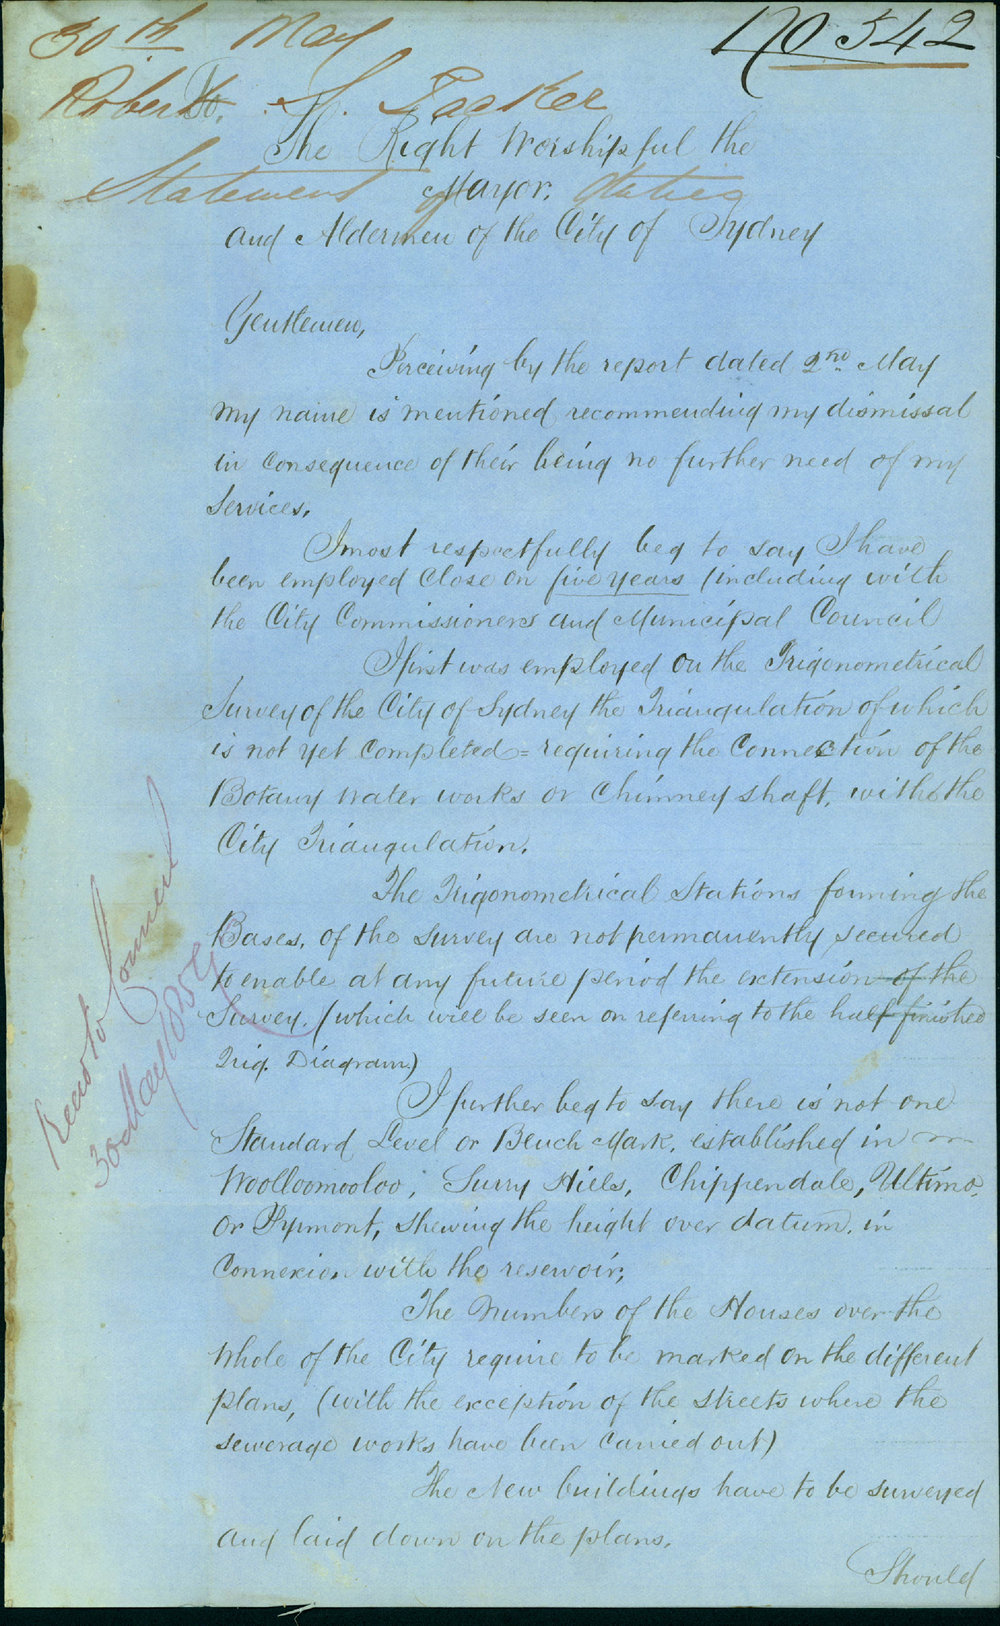 30th May
No 542
Robert S. Packer
Statement of duties
To,
The Right Worshipful the
Mayor,
and Aldermen of the City of Sydney
Gentlemen,
Perceiving by the report dated 2nd May
my name is mentioned recommending my dismissal
in consequence of their being no further need of my
Services.
I most respectfully beg to say I have
been employed close on five years (including with
the City Commissioners and Municipal Council
I first was employed on the Trigonometrical
Survey of the City of Sydney the Triangulation of which
is not yet completed = requiring the Connection of the
Botany Water works or Chimney shaft, with the
City Triangulation.
The Trigonometrical Stations forming the
Bases, of the survey are not permanently secured
to enable at any future period the extension of the
Survey. (which will be seen on referring to the half finished
Trig. Diagram.)
I further beg to say there is not one
Standard Level or Bench Mark, established in
Woolloomooloo, Surry Hills, Chippendale, Ultimo,
or Pyrmont, shewing the height over datum, in
Connexion with the reservoir,
The Numbers of the Houses over the
Whole of the City require to be marked on the different
plans, (with the exception of the streets where the
sewerage works have been carried out)
The New buildings have to be surveyed
and laid down on the plans.
Should
Read to Council
30 May 1859